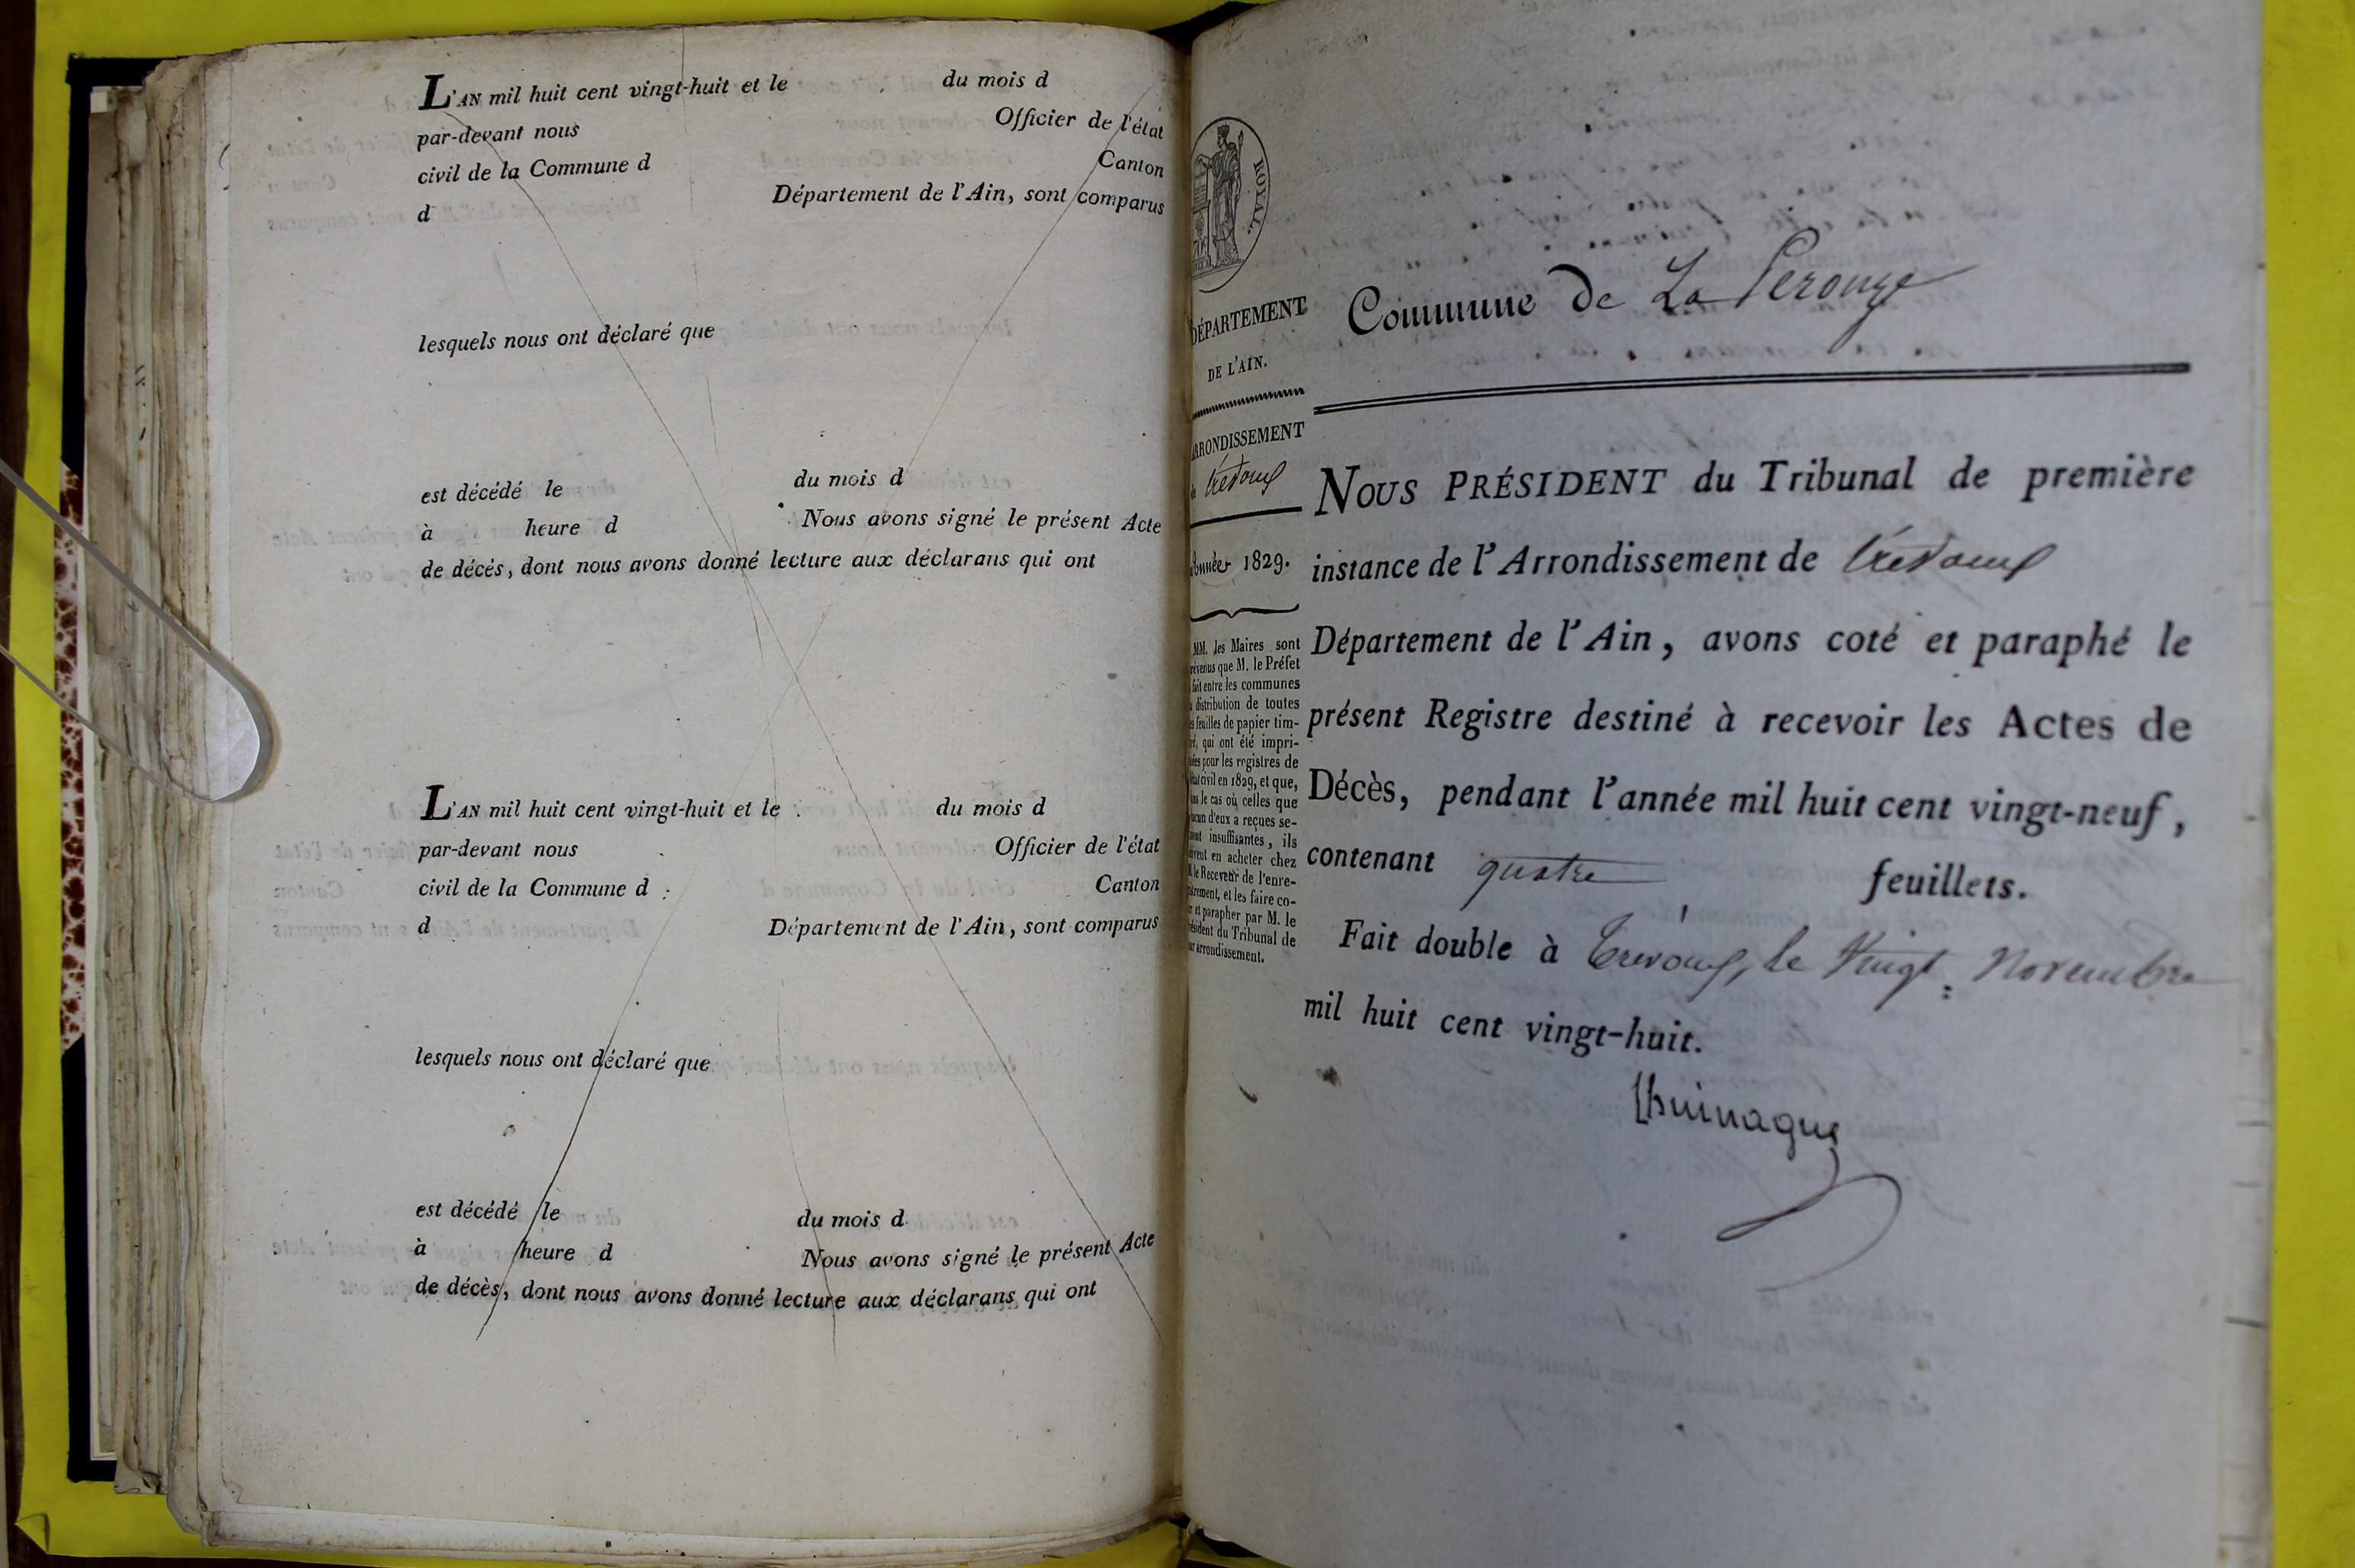 L'AN mil huit cent vingt-huit et le du mois d
par-devant nous Officier de l'état
civil de la Commune d Canton
d Département de l'Ain, sont comparus
lesquels nous ont déclaré que
est décédé le du mois d
à heure d Nous avons signé le présent Acte
de décès, dont nous avons donné lecture aux déclarans qui ont
L'AN mil huit cent vingt-huit et le du mois d
par-devant nous Officier de l'état
civil de la Commune d Canton
d Département de l'Ain, sont comparus
lesquels nous ont déclaré que
est décédé le du mois d
à heure d Nous avons signé le présent Acte
de décès, dont nous avons donné lecture aux déclarans qui ont
ROYAL.
DÉPARTEMENT
DE L'AIN.
ARRONDISSEMENT
de Trévoux
Année 1829.
MM. les Maires sont
prévenus que M. le Préfet
fait entre les communes
la distribution de toutes
les feuilles de papier tim-
bré, qui ont été impri-
mées pour les registres de
l'état civil en 1829, et que,
dans le cas où celles que
chacun d'eux a reçues se-
raient insuffisantes, ils
doivent en acheter chez
M. le Receveur de l'enre-
gistrement, et les faire co-
ter et parapher par M. le
Président du Tribunal de
leur arrondissement.
Commune de La Perouze
NOUS PRÉSIDENT du Tribunal de première
instance de l'Arrondissement de Trévoux
Département de l'Ain, avons coté et paraphé le
présent Registre destiné à recevoir les Actes de
Décès, pendant l'année mil huit cent vingt-neuf,
contenant quatre feuillets.
Fait double à Trévoux, le Vingt Novembre
mil huit cent vingt-huit.